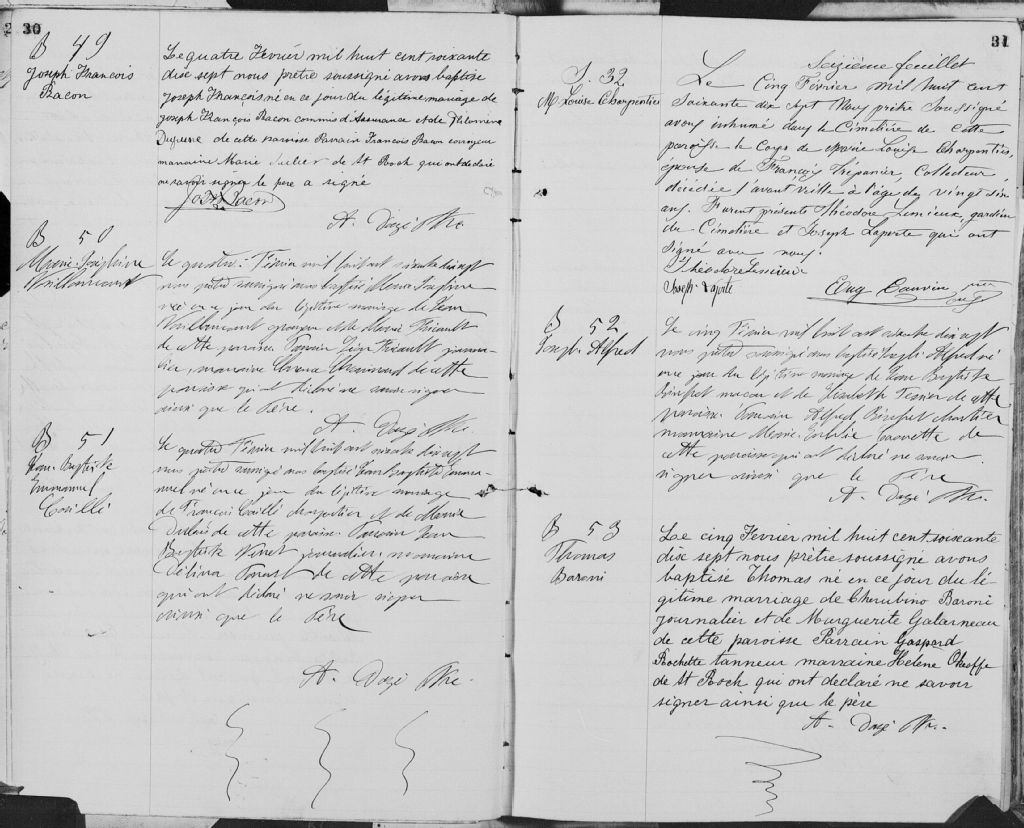 30
B 49
Joseph Francois
Bacon
Le quatre Fevrier mil huit cent soixante
dix sept nous prêtre soussigné avons baptisé
Joseph François, né en ce jour du légitime mariage de
Joseph François Bacon commis d'Assurance et de Philomène
de cette paroisse Parrain Francois Bacon corroyeur
marraine Marie Julier de St Roch qui ont declaré
ne savoir signer le père a signé
Jos F Bacon
A. Dazé Ptre.
B 50
Marie Josephine
Vaillancourt
Le quatre Février mil huit cent soixante dix sept
nous prêtre soussigné avons baptisé Marie Josephine
née en ce jour du légitime mariage de Jean
Vaillancourt et de Marie Thériault
de cette paroisse Parrain Thériault journa-
lier, marraine de cette
paroisse qui ont déclaré ne savoir signer
ainsi que le Père.
A. Dazé Ptre.
B 51
Jean-Baptiste
Emmanuel
Le quatre Février mil huit cent soixante dix sept
nous prêtre soussigné avons baptisé Jean Baptiste Emma-
nuel né en ce jour du légitime mariage
de François charpentier et de Marie
de cette paroisse Parrain Jean
Baptiste journalier marraine
Délina de cette paroisse
qui ont déclaré ne savoir signer
ainsi que le Père
A. Dazé Ptre.
31
Seizième feuillet
S. 32
M. Louise Charpentier
Le Cinq Fevrier mil huit cent
Soixante dix Sept Nous prêtre Soussigné
avons inhumé dans le Cimetière de cette
paroisse le Corps de Marie Louise Charpentier,
épouse de François Trépanier, Collecteur,
décédée l'avant veille à l'âge de vingt six
ans. Furent présents Théodore Lemieux, gardien
du Cimetière et Joseph Laporte qui ont
Signé avec nous.
Théodore Lemieux
Joseph Laporte
Eug Cauvin ptre
B 52
Joseph Alfred
Le cinq Février mil huit cent soixante dix sept
nous prêtre soussigné avons baptisé Joseph Alfred né
en ce jour du légitime mariage de Jean Baptiste
maçon et de Elisabeth Tessier de cette
paroisse. Parrain Alfred charretier
marraine Marie de
cette paroisse qui ont déclaré ne savoir
signer ainsi que le Père
A. Dazé Ptre.
B 53
Thomas
Baroni
Le cinq Fevrier mil huit cent soixante
dix sept nous prêtre soussigné avons
baptisé Thomas né en ce jour du lé-
gitime marriage de Cherubino Baroni
journalier et de Marguerite Galarneau
de cette paroisse Parrain Gaspard
Rochette tanneur marraine Hélène Okeeffe
de St Roch qui ont declaré ne savoir
signer ainsi que le père
A. Dazé Ptre.